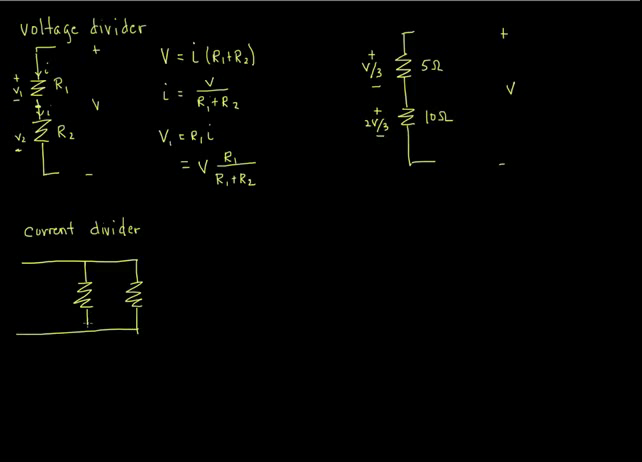 voltage divider
+
i
+
V₁
−
R₁
V
i
+
V₂
−
R₂
−
V = i (R₁+R₂)
i = V / (R₁+R₂)
V₁ = R₁ i
= V R₁ / (R₁+R₂)
+
+
V/3
−
5Ω
V
+
2V/3
−
10Ω
−
current divider